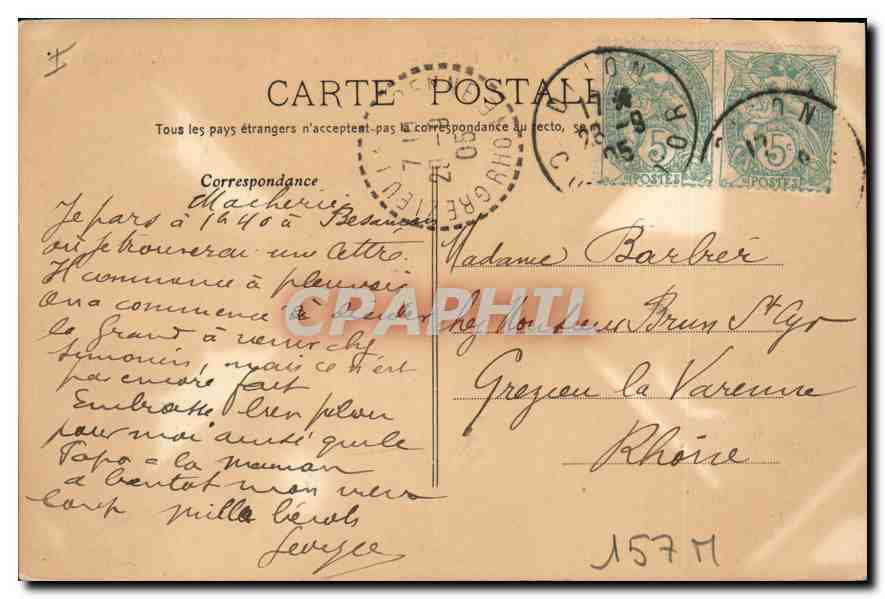 CARTE POSTALE
Tous les pays étrangers n'acceptent pas la correspondance au recto, se
Correspondance
Ma cherie
Je pars à 1h40 à Besançon
où je trouverai une lettre.
Il commence à pleuvoir
On a commencé à
le Grand à
Simonin, mais ce n'est
pas encore fait
Embrasse bien
pour moi ainsi que le
Papa & la maman
a bientot mon vieux
Mille
Georges
Madame Barbier
chez Monsieur Brun St Cyr
Grezieu la Varenne
Rhône
157 M
DIJON
17
28-9
05
COTE D'OR
5c
POSTES
5c
POSTES
GREZIEU LA VARENNE
RHONE
7
29-9
05
CPAPHIL